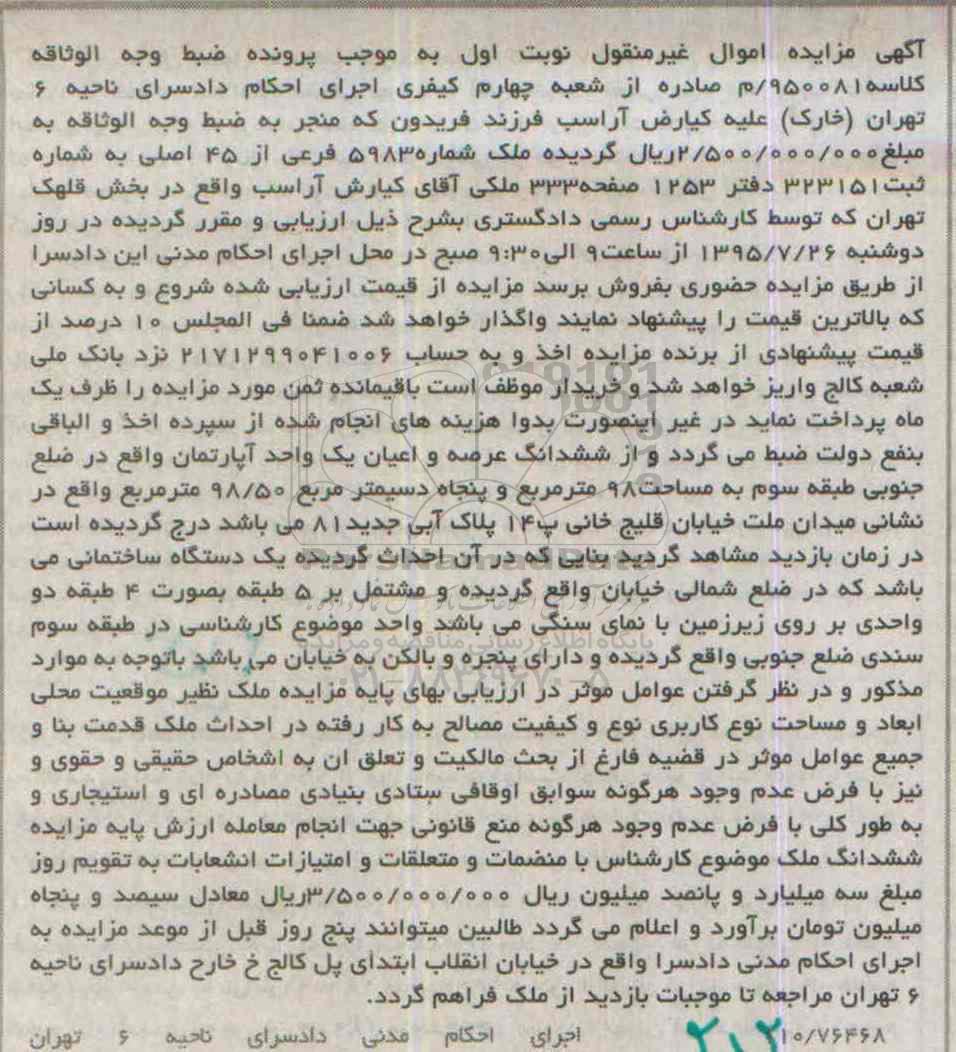 آگهی مزایده اموال غیرمنقول نوبت اول به موجب پرونده ضبط وجه الوثاقه
کلاسه۹۵۰۰۸۱/م صادره از شعبه چهارم کیفری اجرای احکام دادسرای ناحیه ۶
تهران (خارک) علیه کیارض آراسب فرزند فریدون که منجر به ضبط وجه الوثاقه به
مبلغ۲/۵۰۰/۰۰۰/۰۰۰ریال گردیده ملک شماره۵۹۸۳ فرعی از ۴۵ اصلی به شماره
ثبت۳۲۳۱۵۱ دفتر ۱۲۵۳ صفحه۳۳۳ ملکی آقای کیارش آراسب واقع در بخش قلهک
تهران که توسط کارشناس رسمی دادگستری بشرح ذیل ارزیابی و مقرر گردیده در روز
دوشنبه ۱۳۹۵/۷/۲۶ از ساعت۹ الی۹:۳۰ صبح در محل اجرای احکام مدنی این دادسرا
از طریق مزایده حضوری بفروش برسد مزایده از قیمت ارزیابی شده شروع و به کسانی
که بالاترین قیمت را پیشنهاد نمایند واگذار خواهد شد ضمنا فی المجلس ۱۰ درصد از
قیمت پیشنهادی از برنده مزایده اخذ و به حساب ۲۱۷۱۲۹۹۰۴۱۰۰۶ نزد بانک ملی
شعبه کالج واریز خواهد شد و خریدار موظف است باقیمانده ثمن مورد مزایده را ظرف یک
ماه پرداخت نماید در غیر اینصورت بدوا هزینه های انجام شده از سپرده اخذ و الباقی
بنفع دولت ضبط می گردد و از ششدانگ عرصه و اعیان یک واحد آپارتمان واقع در ضلع
جنوبی طبقه سوم به مساحت۹۸ مترمربع و پنجاه دسیمتر مربع ۹۸/۵۰ مترمربع واقع در
نشانی میدان ملت خیابان قلیچ خانی پ۱۴ پلاک آبی جدید۸۱ می باشد درج گردیده است
در زمان بازدید مشاهد گردید بنایی که در آن احداث گردیده یک دستگاه ساختمانی می
باشد که در ضلع شمالی خیابان واقع گردیده و مشتمل بر ۵ طبقه بصورت ۴ طبقه دو
واحدی بر روی زیرزمین با نمای سنگی می باشد واحد موضوع کارشناسی در طبقه سوم
سندی ضلع جنوبی واقع گردیده و دارای پنجره و بالکن به خیابان می باشد باتوجه به موارد
مذکور و در نظر گرفتن عوامل موثر در ارزیابی بهای پایه مزایده ملک نظیر موقعیت محلی
ابعاد و مساحت نوع کاربری نوع و کیفیت مصالح به کار رفته در احداث ملک قدمت بنا و
جمیع عوامل موثر در قضیه فارغ از بحث مالکیت و تعلق ان به اشخاص حقیقی و حقوی و
نیز با فرض عدم وجود هرگونه سوابق اوقافی ستادی بنیادی مصادره ای و استیجاری و
به طور کلی با فرض عدم وجود هرگونه منع قانونی جهت انجام معامله ارزش پایه مزایده
ششدانگ ملک موضوع کارشناس با منضمات و متعلقات و امتیازات انشعابات به تقویم روز
مبلغ سه میلیارد و پانصد میلیون ریال ۳/۵۰۰/۰۰۰/۰۰۰ریال معادل سیصد و پنجاه
میلیون تومان برآورد و اعلام می گردد طالبین میتوانند پنج روز قبل از موعد مزایده به
اجرای احکام مدنی دادسرا واقع در خیابان انقلاب ابتدای پل کالج خ خارج دادسرای ناحیه
۶ تهران مراجعه تا موجبات بازدید از ملک فراهم گردد.
۱۰/۷۶۴۶۸ ۲۱۲ اجرای احکام مدنی دادسرای ناحیه ۶ تهران
پایگاه اطلاع رسانی مناقصه و مزایده
۰۲۱-۸۸۳۴۹۶۷۰-۵